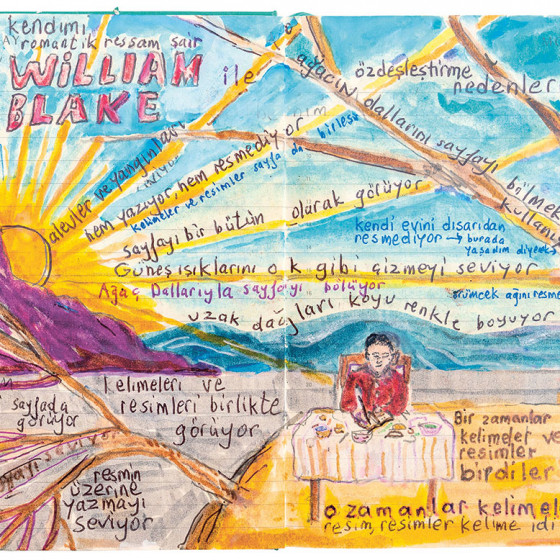 kendimi
romantik ressam şair
WİLLİAM
BLAKE ile
özdeşleştirme
nedenler
ağacın dallarını sayfayı bölmek
kullanı
alevler ve yangınları
hem yazıyor, hem resmediyor
kelimeler ve resimler sayfa da birleşi
sayfayı bir bütün olarak görüyor
kendi evini dısarıdan
resmediyor → burada
yaşadım diyerek
Güneş ışıklarını ok gibi çizmeyi seviyor
Ağaç Dallarıyla sayfayı bölüyor
örümcek ağını resme
uzak dağları koyu renkle boyuyor
kelimeleri ve
resimleri birlikte
görüyor
i sayfada
görüyor
resmin
üzerine
yazmayı
seviyor
Bir zamanlar
kelimeler ve
resimler
birdiler
o zamanlar kelimel
resim, resimler kelime idi